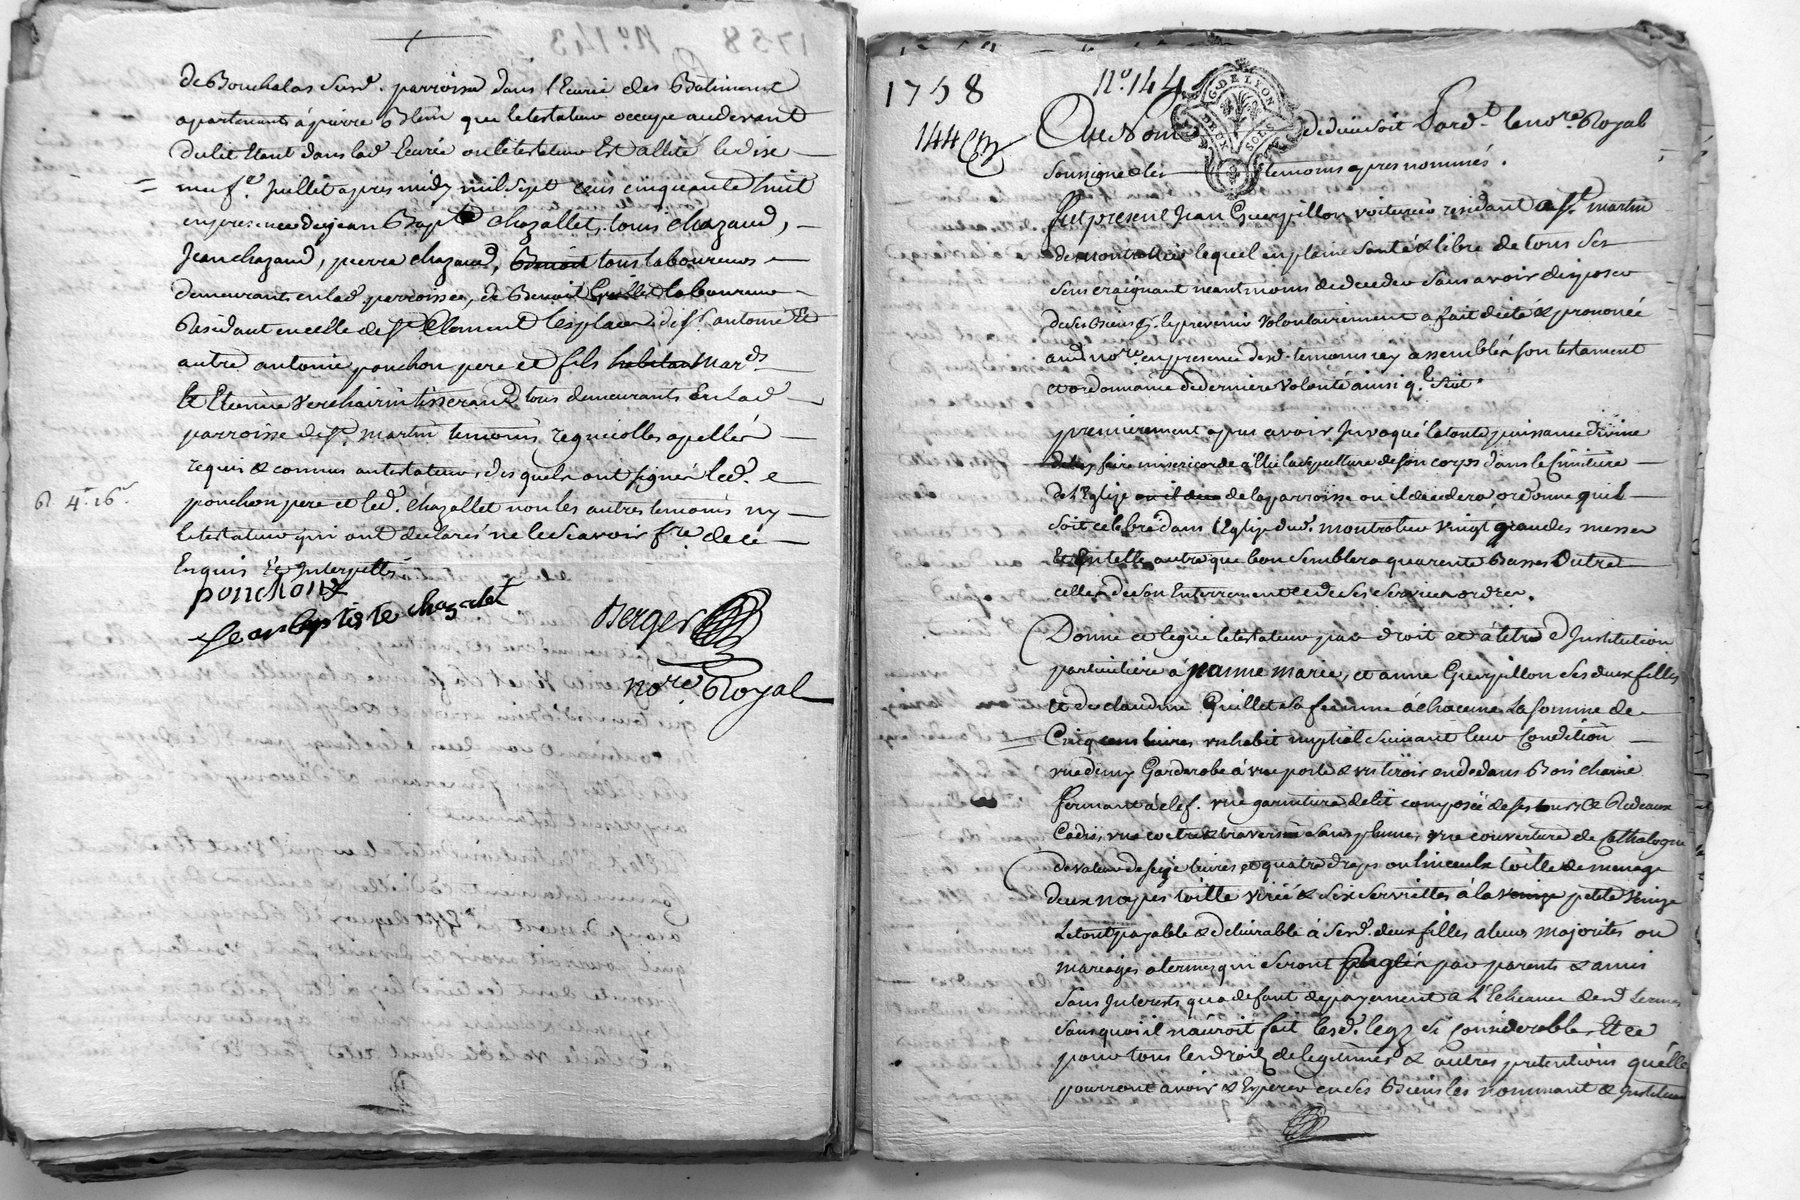 de Bouchalas Susd. parroisse dans l'Ecurie des Batiments
apartenants à pierre Blein que le testateur occupe au devant
du lit Etant dans lad. Ecurie ou le testateur Est allité le dixe
neufe. Juillet apres midy mil sept cens cinquante huit
en presence de jean Bapte chazallet, louis chazaud,
Jean chazaud, pierre chazaud, tous laboureurs
demeurants en lad. parroisse, de Benoit Grillet laboureur
Residant en celle de St. Clement les places, de sr. antoine Et
autre antoine ponchon pere et fils habitan mards
Et Etienne Verchairin tisserand tous demeurants En lad.
parroisse de St. martin temoins requis elles apellés
requis & connus au testateur, des quels ont signé led.
ponchon pere et led. chazallet non les autres temoins ny
le testateur qui ont declarés ne le scavoir fre. de ce
Enquis & Interpellés
ponchon
Jean baptiste chazalet
Berger
nore Royal
6l 4s. 16d.
1758
No. 144
144
G. DE LYON
DEUX SOLS
Que Pardt. le nore. Royal
soussigné & les temoins apres nommés.
fut present Jean Guerpillon voiturier residant a St. martin
de montrotier lequel en plaine santé & libre de tous ses
sens craignant neantmoins de deceder sans avoir disposer
de ses Biens p. le prevenir volontairement a fait dicté & prononcé
aud. nore. en presence desd. temoins icy assemblés son testament
et ordonnance de derniere volonté ainsi q. suit.
premierement apres avoir Invoqué la toute puissance divine
de luy faire misericorde Elu la sepulture de son corps dans le Cimitiere
de l'Eglise ou il dec de la parroisse ou il decedera ordonne quil
soit celebré dans l'Eglise dud. montrotier vingt grandes messes
Et En telle autre que bon semblera quarente Basses Outre
celles de son Enterrement et de ses services ordres.
Donne et legue le testateur par droit et à titre d'Institution
particuliere à jeanne marie, et anne Guerpillon ses deux filles
et de claudine Guillet sa femme à chacune la somme de
Cinq cens livres un habit nuptial suivant leur Condition
une demy Garderobe à une porte & un tiroir en dedans Bois chaine
fermant à clef. une garniture de lit composée de ses tours & Rideaux
Cadis, une coetre & traversin sans plume, une couverture de Cathalogne
de valeur de seize livres et quatre draps ou linceulx toille de menage
deux napes toille & six serviettes à la venize petite Venize
Le tout payable & delivrable à sesd. deux filles a leurs majorités ou
mariages a termes qui seront Reglés par parents & amis
sans Interests qu'a defaut de payement a l'Echeance desd. termes
sans quoi il n'auroit fait lesd. legz si considerable, Et ce
pour tous les droits de legitimes & autres pretentions qu'elle
pourront avoir & Esperer en ses Biens les nommant & Instituant